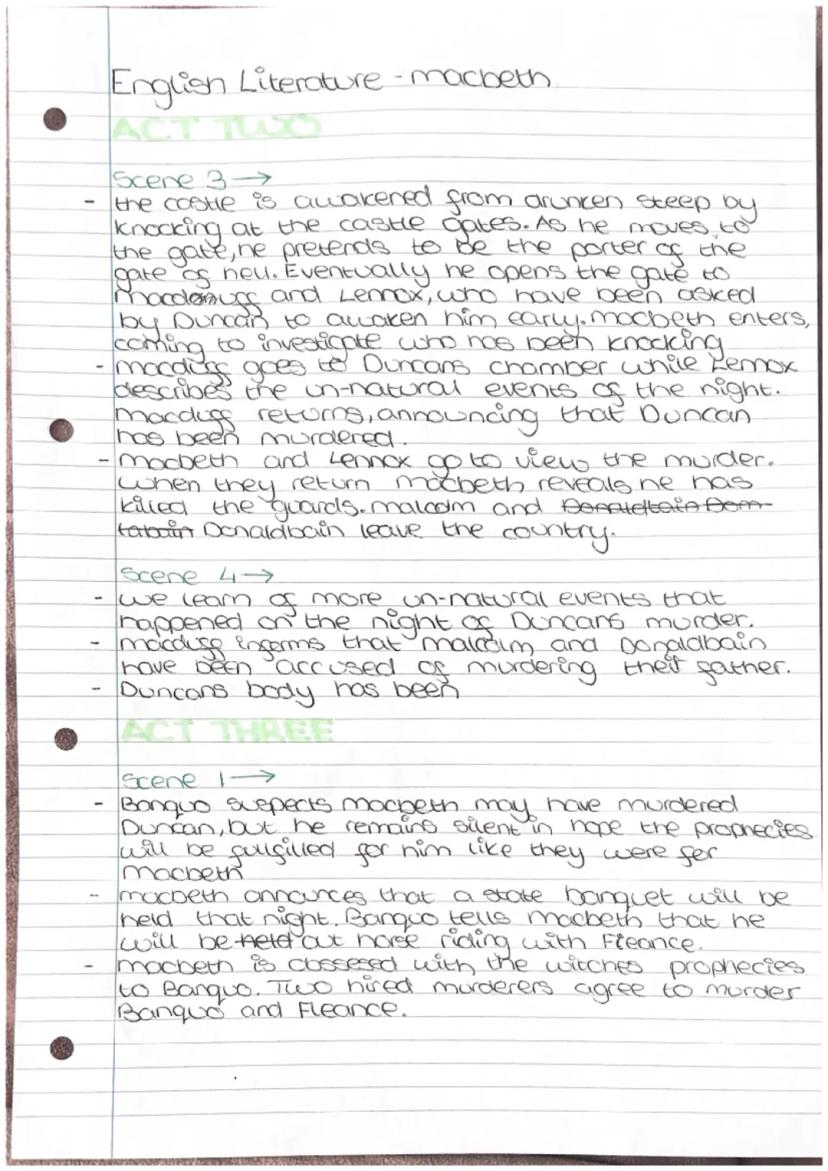 English Literature - macbeth
ACT TWO
Scene 3 →
- the castle is awakened from drunken sleep by
knocking at the castle gates. As he moves to
the gate, he pretends to be the porter of the
gate of hell. Eventually he opens the gate to
and Lennox, who have been asked
by Duncan to awaken him early. macbeth enters,
coming to investigate who has been knocking
- macduff goes to Duncans chamber while Lennox
describes the un-natural events of the night.
macduff returns, announcing that Duncan
has been murdered.
- macbeth and Lennox go to view the murder.
when they return macbeth reveals he has
killed the guards. malcolm and
Donaldbain leave the country.
Scene 4 →
- we learn of more un-natural events that
happened on the night of Duncans murder.
- macduff informs that malcolm and Donaldbain
have been accused of murdering their father.
- Duncans body has been
ACT THREE
Scene 1 →
- Banquo suspects macbeth may have murdered
Duncan, but he remains silent in hope the prophecies
will be fulfilled for him like they were for
macbeth
- macbeth announces that a state banquet will be
held that night. Banquo tells macbeth that he
will be held out horse riding with Fleance.
- macbeth is obssesed with the witches prophecies
to Banquo. Two hired murderers agree to murder
Banquo and Fleance.